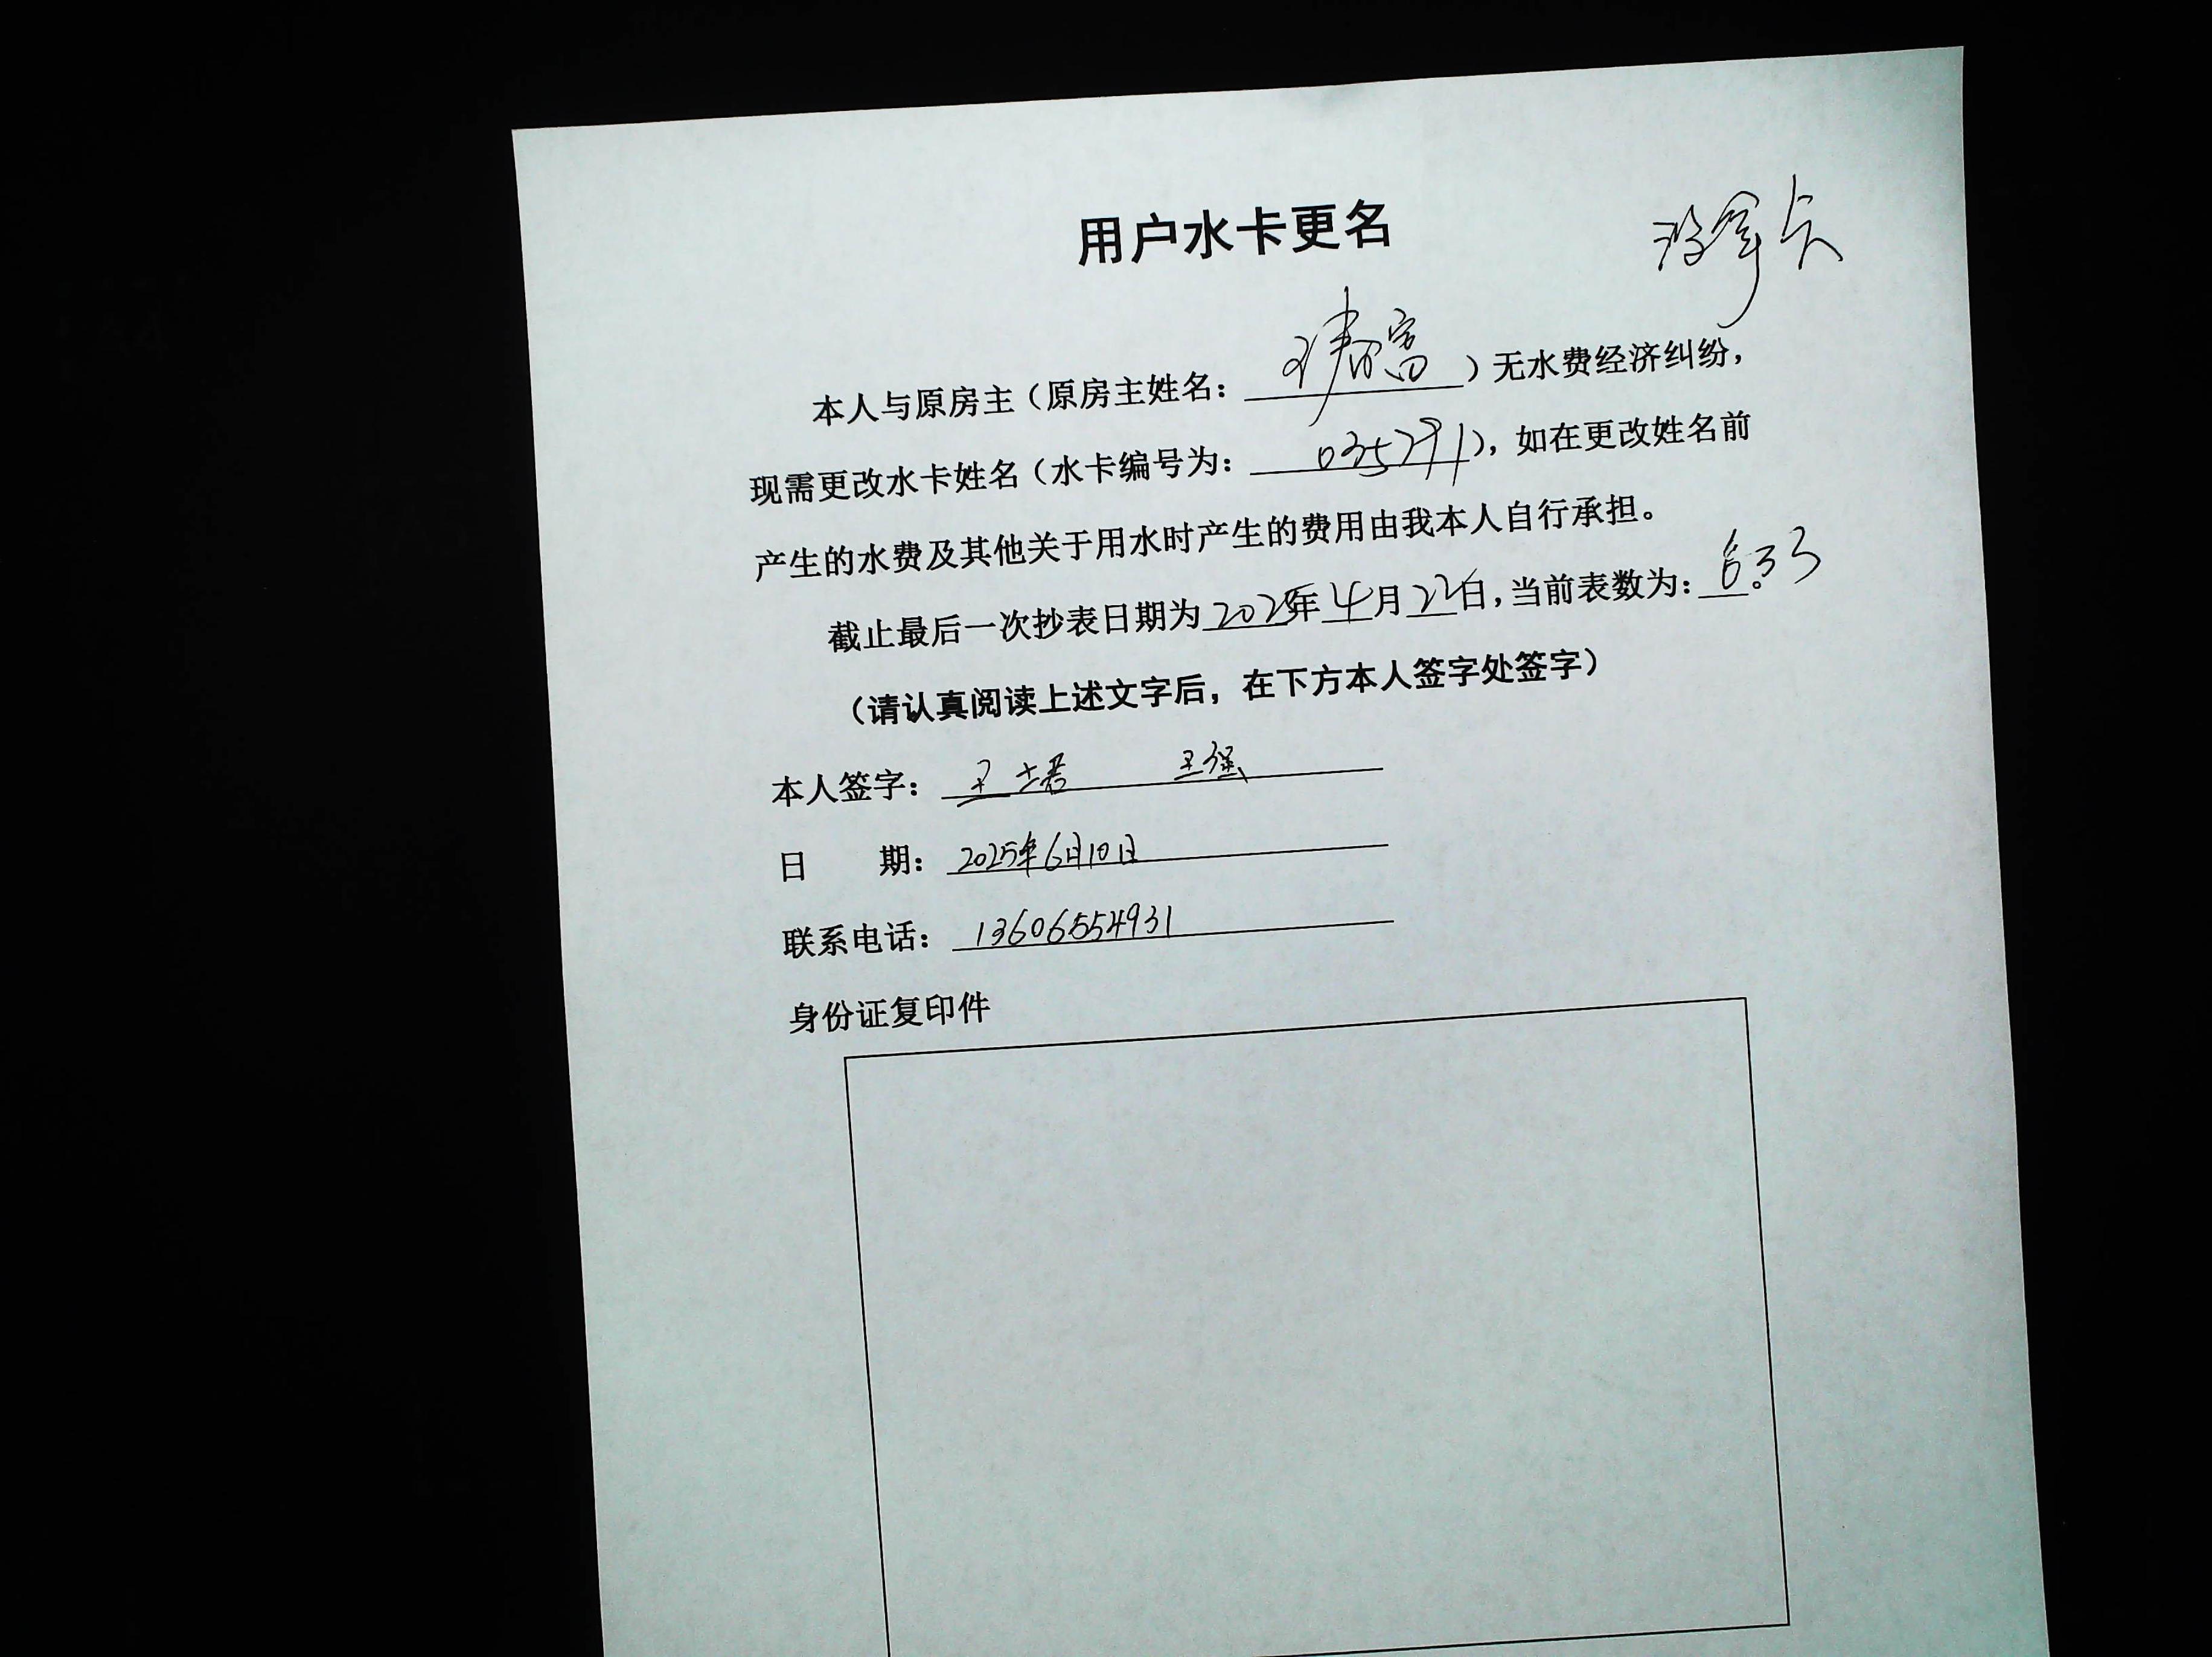 用户水卡更名
本人与原房主（原房主姓名：）无水费经济纠纷，
现需更改水卡姓名（水卡编号为：035291），如在更改姓名前
产生的水费及其他关于用水时产生的费用由我本人自行承担。
截止最后一次抄表日期为2025年4月22日，当前表数为：633。
（请认真阅读上述文字后，在下方本人签字处签字）
本人签字：王 王强
日 期：2025年6月10日
联系电话：13606554931
身份证复印件